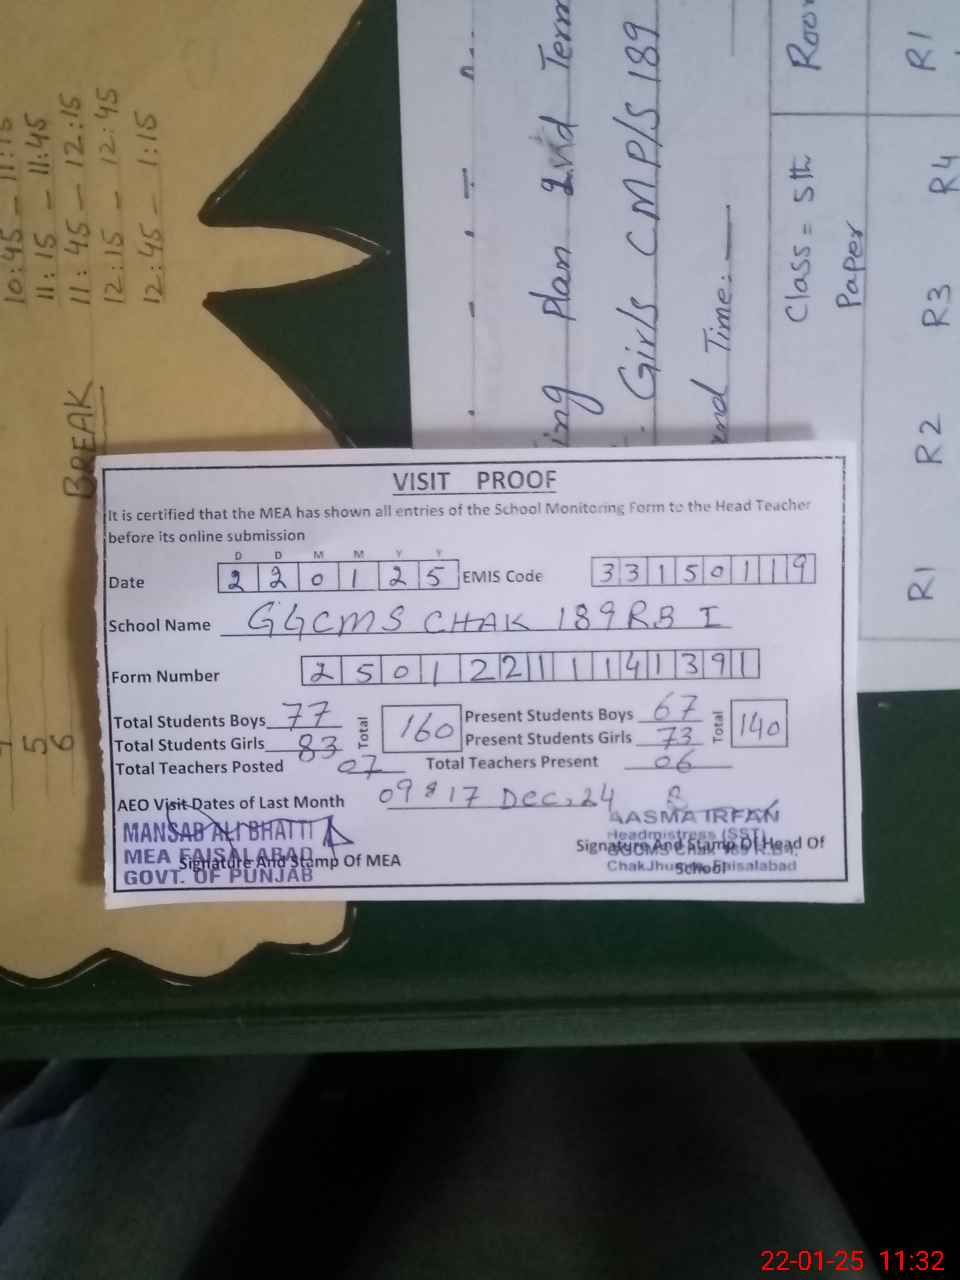 10:45 - 11:15
11:15 - 11:45
11:45 - 12:15
12:15 - 12:45
12:45 - 1:15
BREAK
5
6
Plan 2nd Term
Girls CMP/S 189
and Time:-
Class = 5th
Paper
R1 R2 R3 R4
R1
VISIT PROOF
It is certified that the MEA has shown all entries of the School Monitoring Form to the Head Teacher
before its online submission
D D M M Y Y
Date 2 2 0 1 2 5 EMIS Code 3 3 1 5 0 1 1 9
School Name GGCMS CHAK 189 RB I
Form Number 2 5 0 1 2 2 1 1 1 4 1 3 9 1
Total Students Boys 77 Total 160 Present Students Boys 67 Total 140
Total Students Girls 83 Present Students Girls 73
Total Teachers Posted 07 Total Teachers Present 06
AEO Visit Dates of Last Month 09 & 17 Dec, 24
MANSAB ALI BHATTI
MEA FAISALABAD
GOVT. OF PUNJAB
Signature And Stamp Of MEA
AASMA IRFAN
Headmistress (SST)
Signature And Stamp Of Head Of
School
Faisalabad
22-01-25 11:32